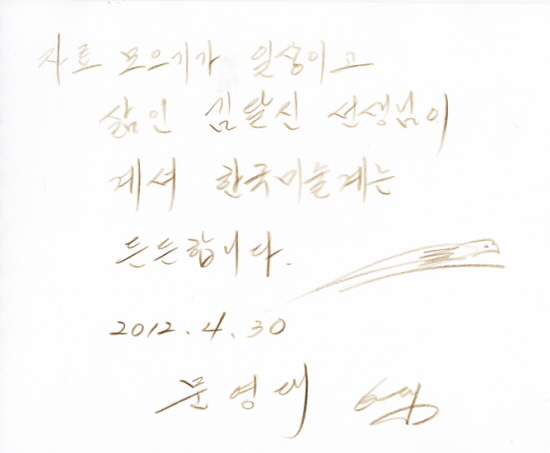 자료 모으기가 일상이고
삶인 김달진 선생님이
계셔 한국미술계는
든든합니다.
2012. 4. 30
문영태